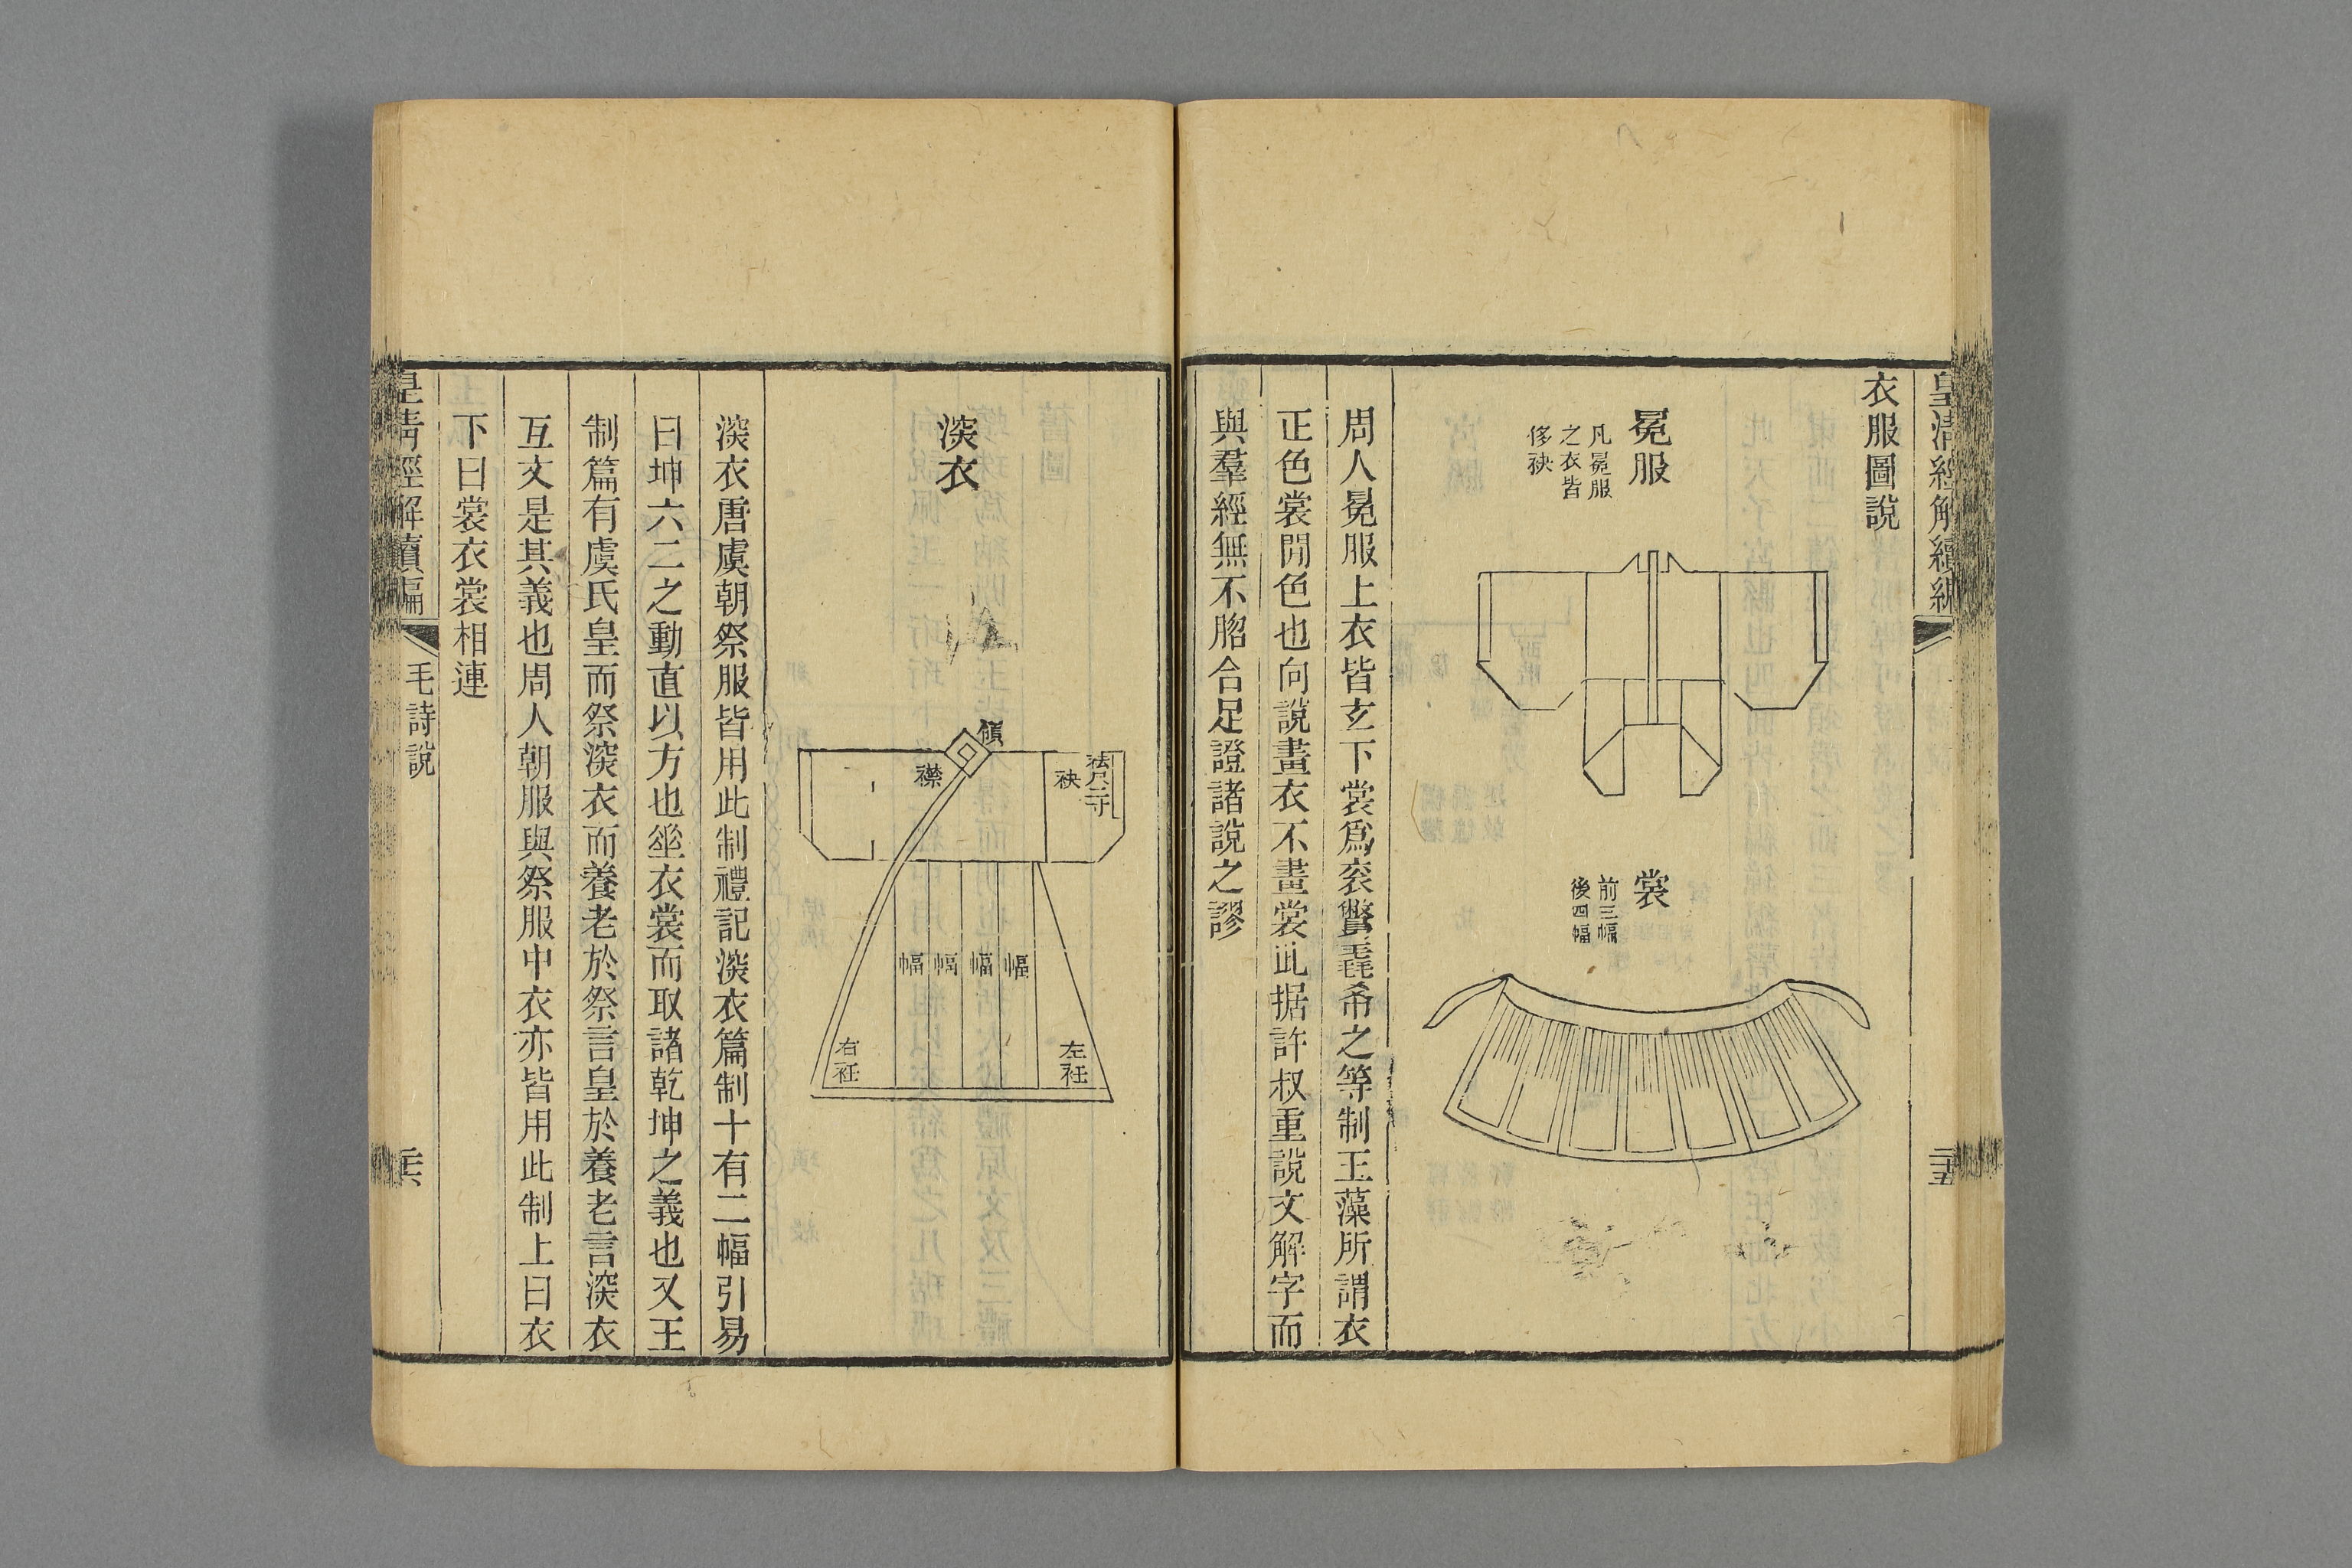 皇清經解續編
二十五
衣服圖說
冕服
凡冕服
之衣皆
侈袂
裳
前三幅
後四幅
周人冕服上衣皆玄下裳爲衮驚毳希之等制玉藻所謂衣
正色裳閒色也向說畫衣不畫裳此据許叔重說文解字而
與羣經無不脗合足證諸說之謬
深衣
領
襟
袂
袪尺二寸
幅
幅
幅
幅
左衽
右衽
深衣唐虞朝祭服皆用此制禮記深衣篇制十有二幅引易
曰坤六二之動直以方也垂衣裳而取諸乾坤之義也又王
制篇有虞氏皇而祭深衣而養老於祭言皇於養老言深衣
互文是其義也周人朝服與祭服中衣亦皆用此制上曰衣
下曰裳衣裳相連
皇清經解續編
毛詩說